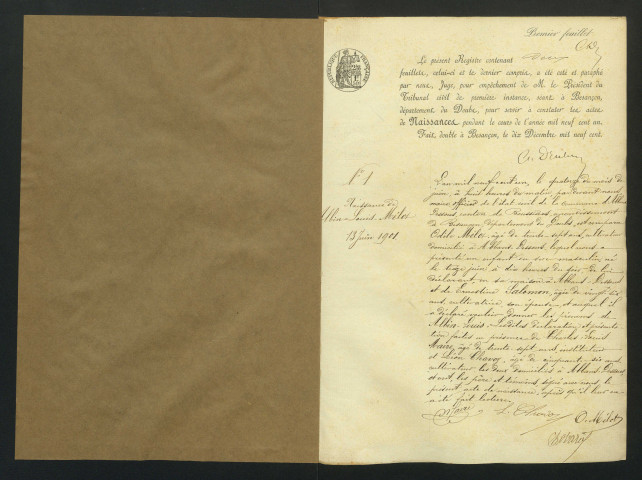 Premier feuillet.
Le présent Registre contenant deux
feuillets, celui-ci et le dernier compris, a été coté et paraphé
par nous, Juge, pour empêchement de M. le Président du
Tribunal civil de première instance, séant à Besançon,
département du Doubs, pour servir à constater les actes
de Naissances pendant le cours de l'année mil neuf cent un
Fait, double à Besançon, le dix Décembre mil neuf cent.
N° 1
Naissance de
Albin Louis Milot
13 juin 1901
L'an mil neuf cent un, le quatorze du mois de
juin, à huit heures du matin, par devant nous,
maire officier de l'état civil de la commune d'Abbans
Dessous, canton de Boussières, arrondissement
de Besançon, département du Doubs, est comparu
Odile Milot, âgé de trente sept ans, cultivateur
domicilié à Abbans-Dessous, lequel nous a
présenté un enfant du sexe masculin, né
le treize juin à dix heures du soir, de lui
déclarant, en sa maison à Abbans-Dessous
et de Ernestine Salomon, âgée de vingt
ans, cultivatrice son épouse, et auquel il
a déclaré vouloir donner les prénoms de
Albin Louis. Lesdites déclaration et présenta-
tion faites en présence de Charles Louis
Maire, âgé de trente-sept ans, instituteur
et Léon Chavey, âgé de cinquante-six ans
cultivateur les deux domiciliés à Abbans-Dessous
et ont, les père et témoins signé avec nous le
présent acte de naissance, après qu'il leur en
a été fait lecture.
Maire L. Chavey O. Milot